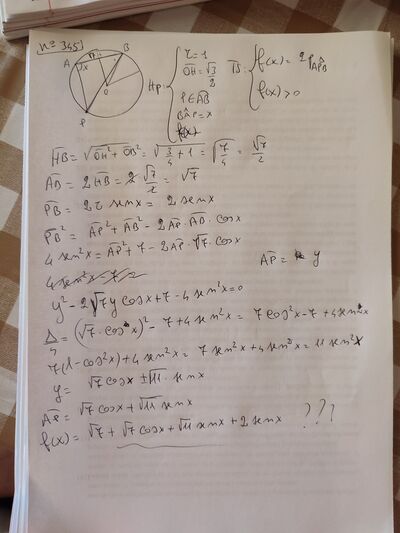 N° 345
A H B
x
O
P
Hp: r = 1
OH = √3/2
P ∈ AB
BÂP = x
f(x)
Th: f(x) = 2p APB
f(x) > 0
HB = √OH² + OB² = √3/4 + 1 = √7/4 = √7/2
AB = 2HB = 2 √7/2 = √7
PB = 2r senx = 2 senx
PB² = AP² + AB² - 2AP · AB · cosx
4 sen²x = AP² + 7 - 2AP · √7 · cosx
AP = y
4 sen²x - 7
y² - 2√7 y cosx + 7 - 4 sen²x = 0
Δ/4 = (√7 · cosx)² - 7 + 4 sen²x = 7 cos²x - 7 + 4 sen²x
7(1 - cos²x) + 4 sen²x = 7 sen²x + 4 sen²x = 11 sen²x
y = √7 cosx ± √11 · senx
AP = √7 cosx + √11 senx
f(x) = √7 + √7 cosx + √11 senx + 2 senx ???